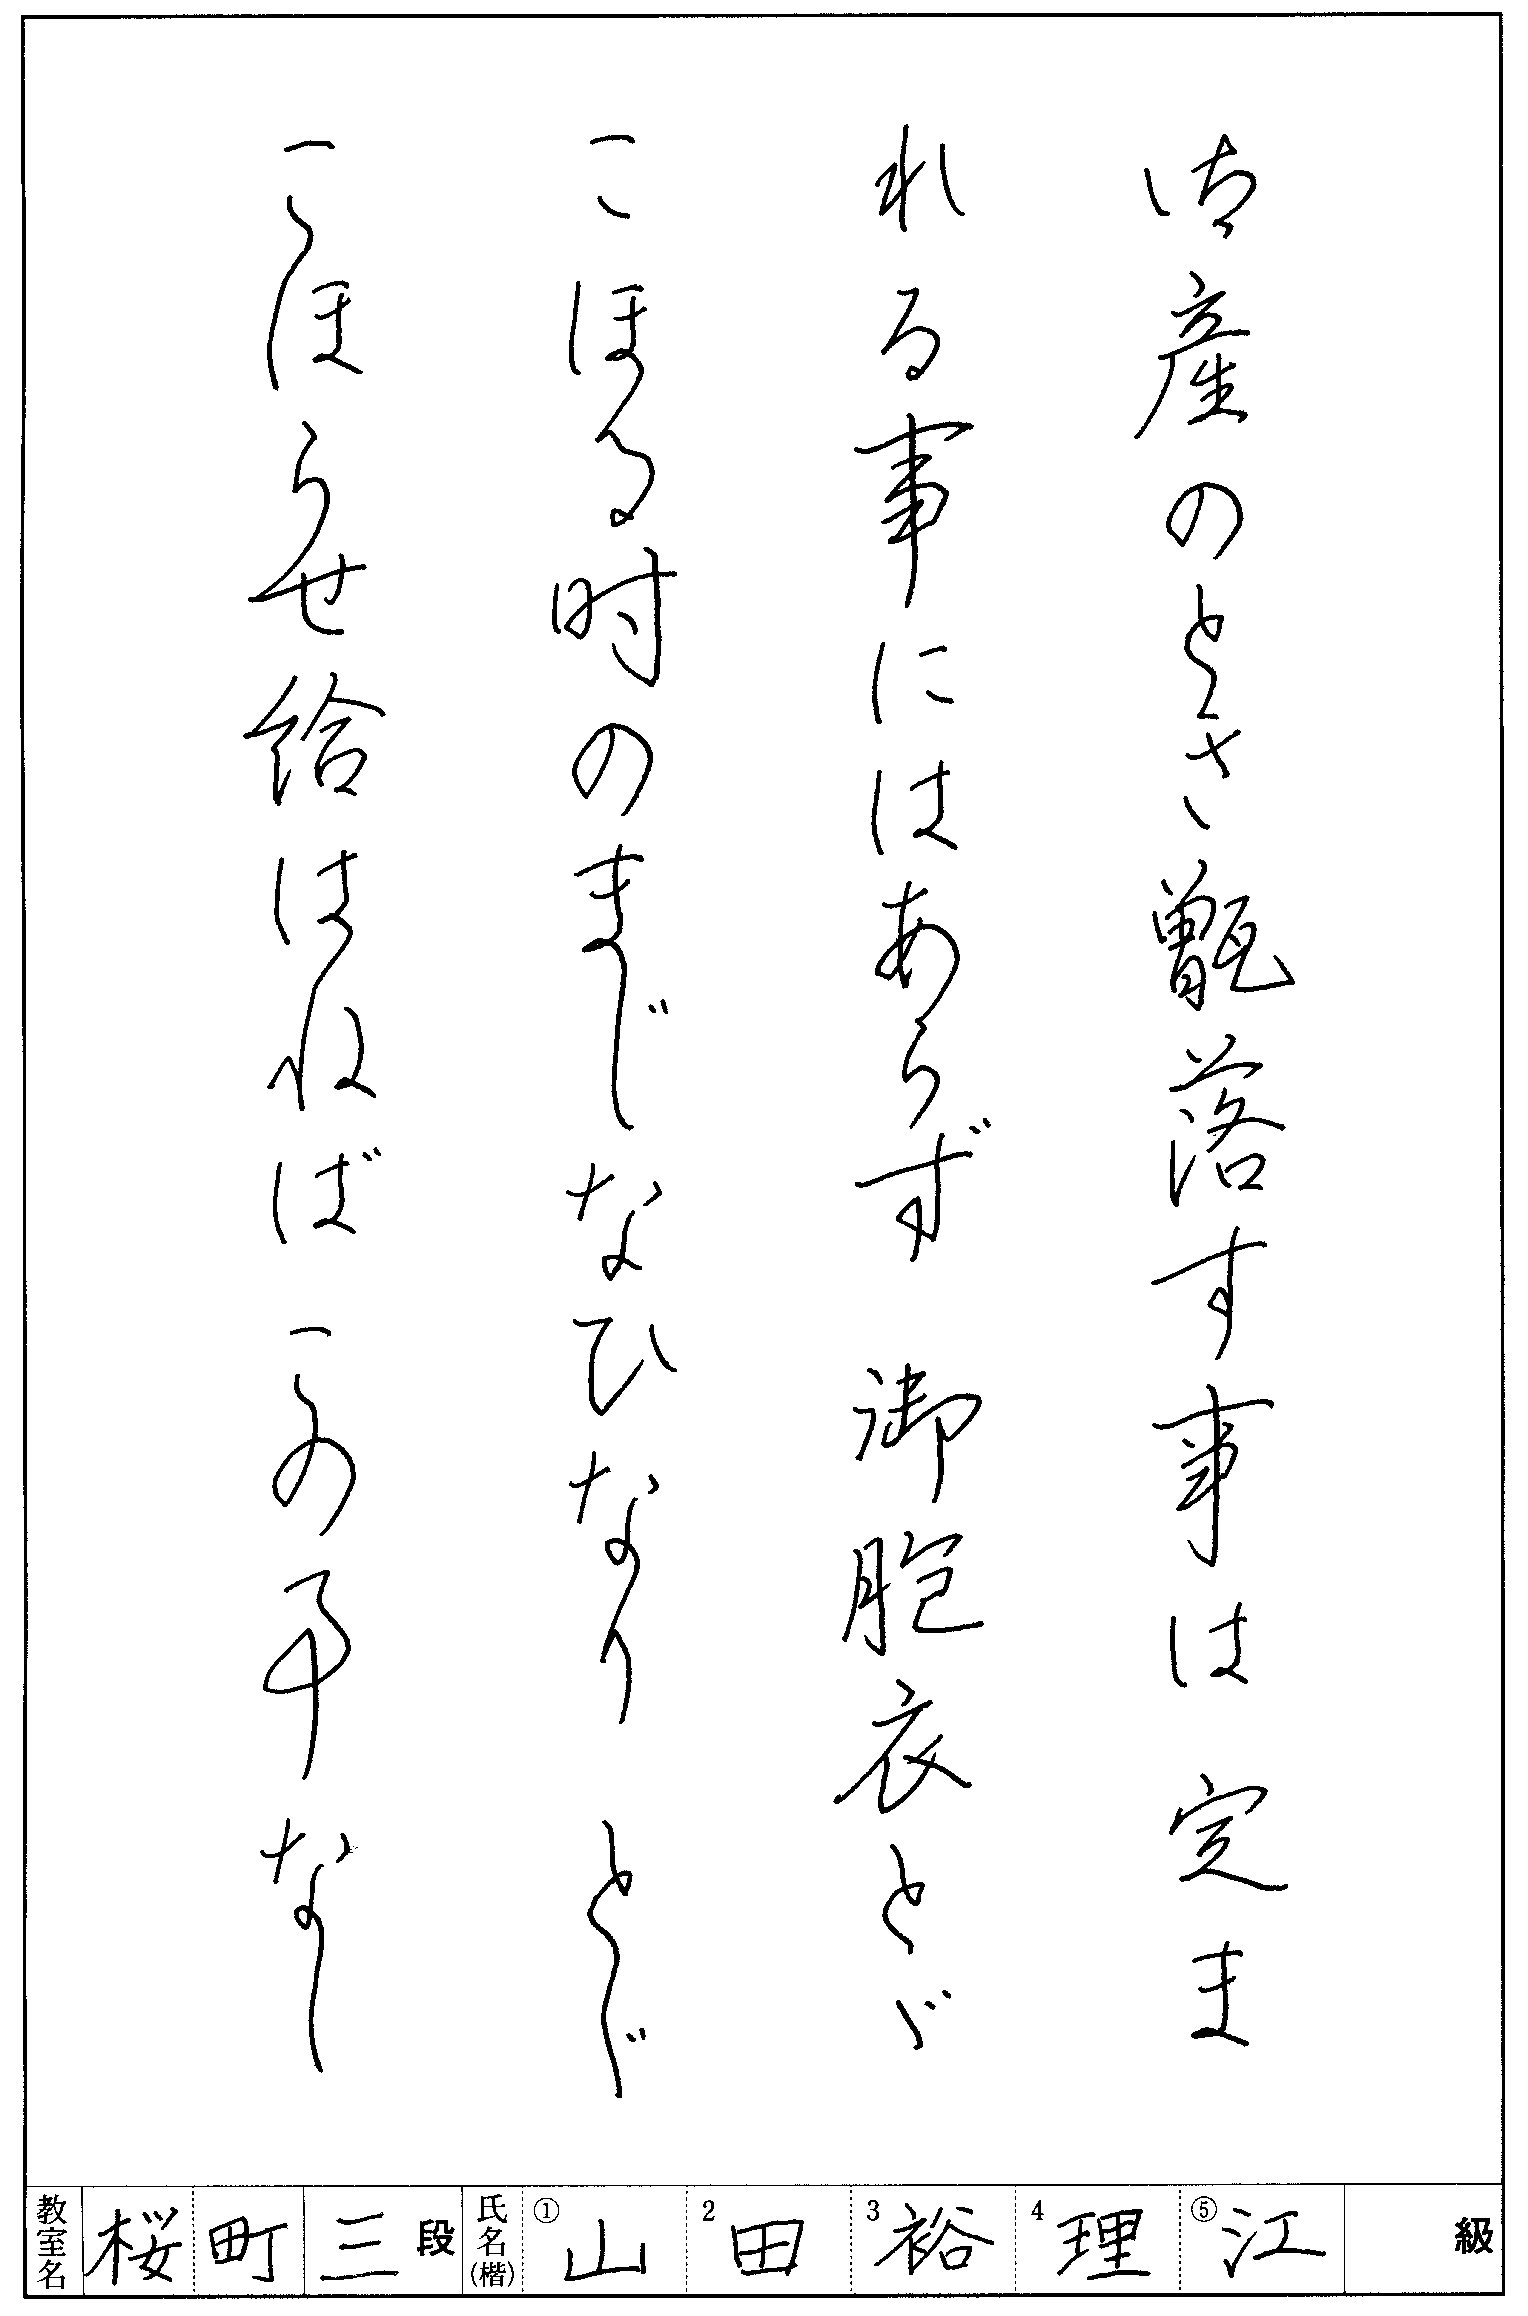 御産のとき甑落す事は定ま
れる事にはあらず 御胞衣とゞ
こほる時のまじなひなり とゞ
こほらせ給はねば この事なし
教室名 桜町 三段 氏名(楷) ①山 2田 3裕 4理 ⑤江 級